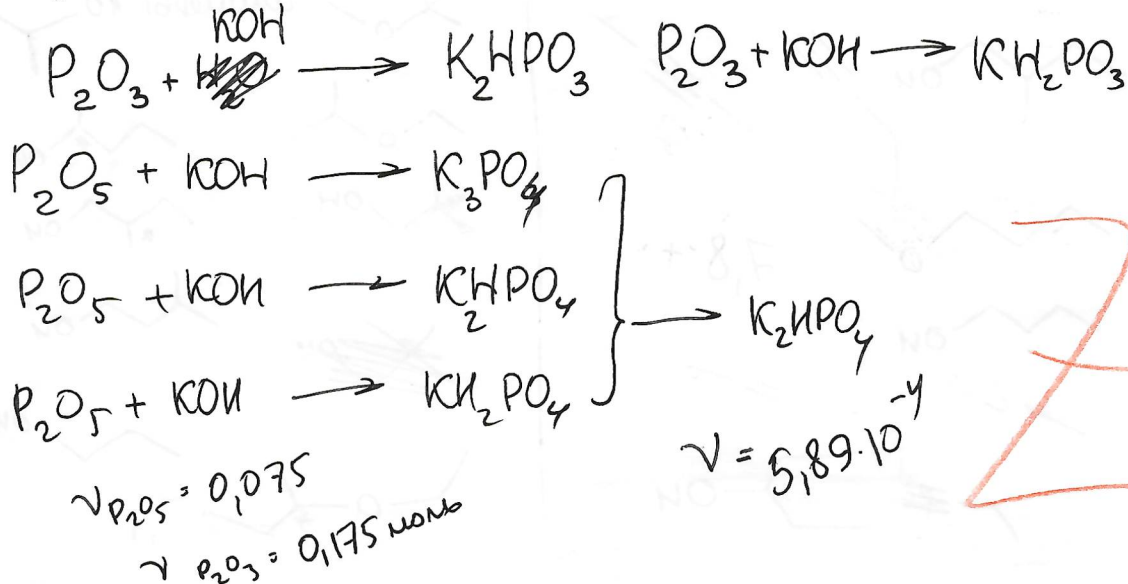 P₂O₃ + KOH → K₂HPO₃
P₂O₃ + KOH → KH₂PO₃
P₂O₅ + KOH → K₃PO₄
P₂O₅ + KOH → K₂HPO₄
P₂O₅ + KOH → KH₂PO₄
→ K₂HPO₄
ν = 5,89·10⁻⁴
ν P₂O₅ = 0,075
ν P₂O₃ = 0,175 моль